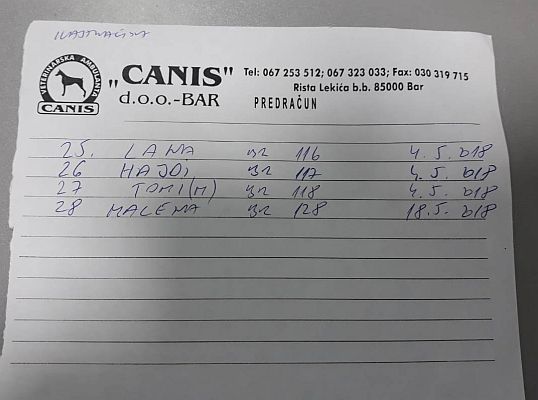 VETERINARSKA AMBULANTA
CANIS
"CANIS"
d.o.o.-BAR
Tel: 067 253 512; 067 323 033; Fax: 030 319 715
Rista Lekića b.b. 85000 Bar
PREDRAČUN
25. LANA BR 116 4. 5. 018
26 HAJDI BR 117 4. 5. 018
27 TOMI (M) BR 118 4. 5. 018
28 MALENA BR 128 18. 5. 018